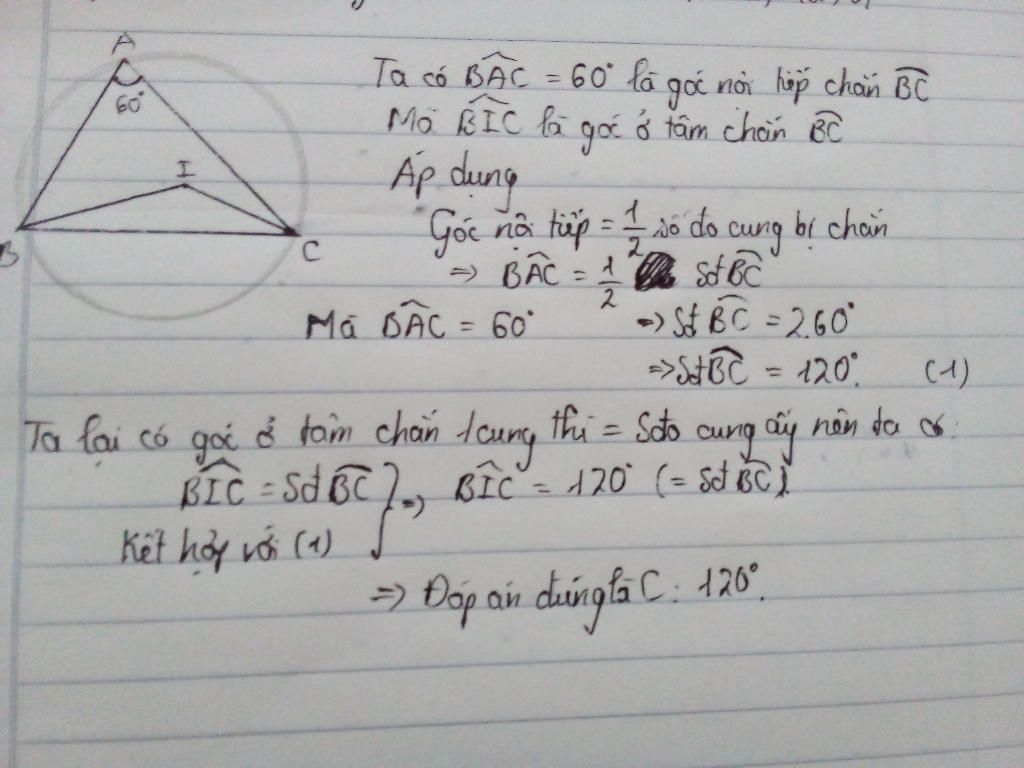 A
60°
I
B
C
Ta có BÂC = 60° là góc nội tiếp chắn BC
Mà BÎC là góc ở tâm chắn BC
Áp dụng
Góc nội tiếp = 1/2 số đo cung bị chắn
=> BÂC = 1/2 Sđ BC
Mà BÂC = 60° => Sđ BC = 2.60°
=> Sđ BC = 120°. (1)
Ta lại có góc ở tâm chắn 1 cung thì = Sđo cung ấy nên ta có:
BÎC = Sđ BC } => BÎC = 120° (= Sđ BC).
Kết hợp với (1)
=> Đáp án đúng là C: 120°.